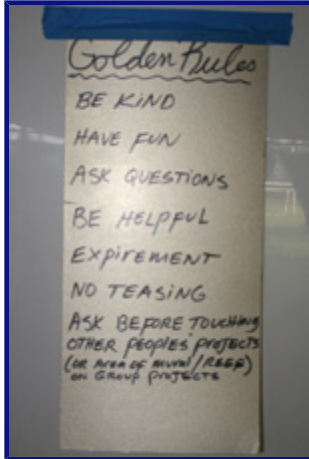 Golden Rules
BE KIND
HAVE FUN
ASK QUESTIONS
BE HELPFUL
EXPIREMENT
NO TEASING
ASK BEFORE TOUCHING
OTHER PEOPLES' PROJECTS
(OR AREA OF MURAL/REEF)
ON GROUP PROJECTS